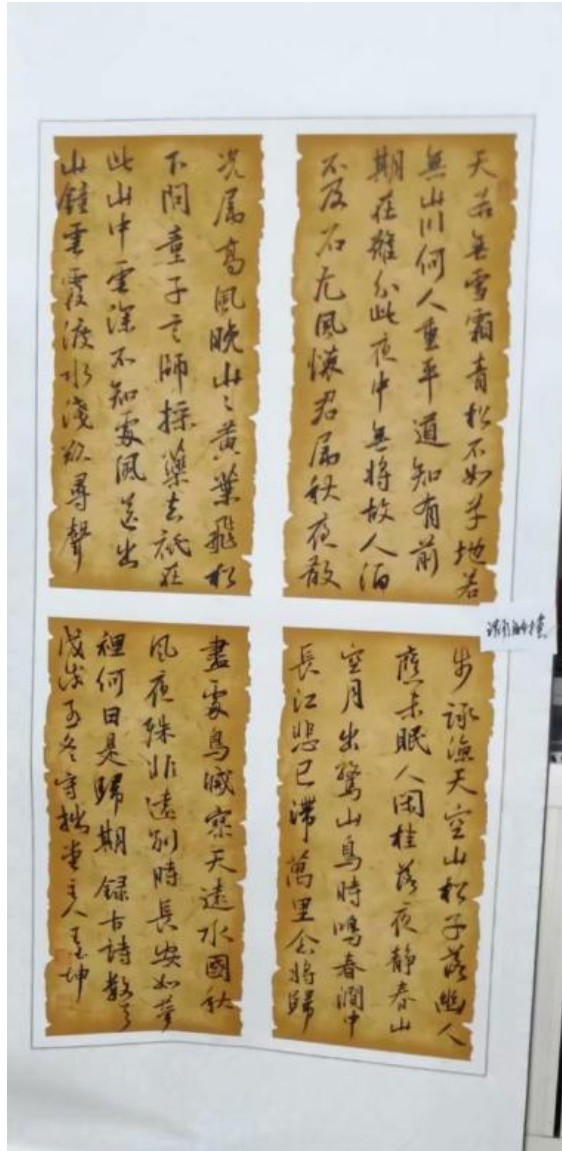 天若無雪霜青松不如草地若
無山川何人重平道知有前
期在難分此夜中無將故人酒
不及石尤風懷君屬秋夜散
步詠涼天空山松子落幽人
應未眠人閑桂落夜靜春山
空月出驚山鳥時鳴春澗中
長江悲已滯萬里念將歸
況屬高風晚山〻黃葉飛松
下問童子言師採藥去祇在
此山中雲深不知處風送出
山鐘雲霞渡水淺欲尋聲
盡處鳥滅寥天遠水國秋
風夜殊非遠別時長安如夢
裡何日是歸期 錄古詩數首
戊戌孟冬守拙堂主人王坤